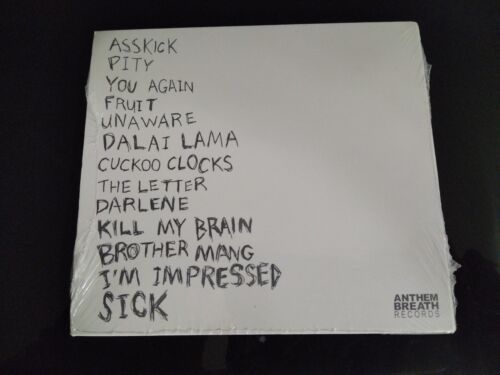 ASSKICK
PITY
YOU AGAIN
FRUIT
UNAWARE
DALAI LAMA
CUCKOO CLOCKS
THE LETTER
DARLENE
KILL MY BRAIN
BROTHER MANG
I'M IMPRESSED
SICK
ANTHEM
BREATH
RECORDS